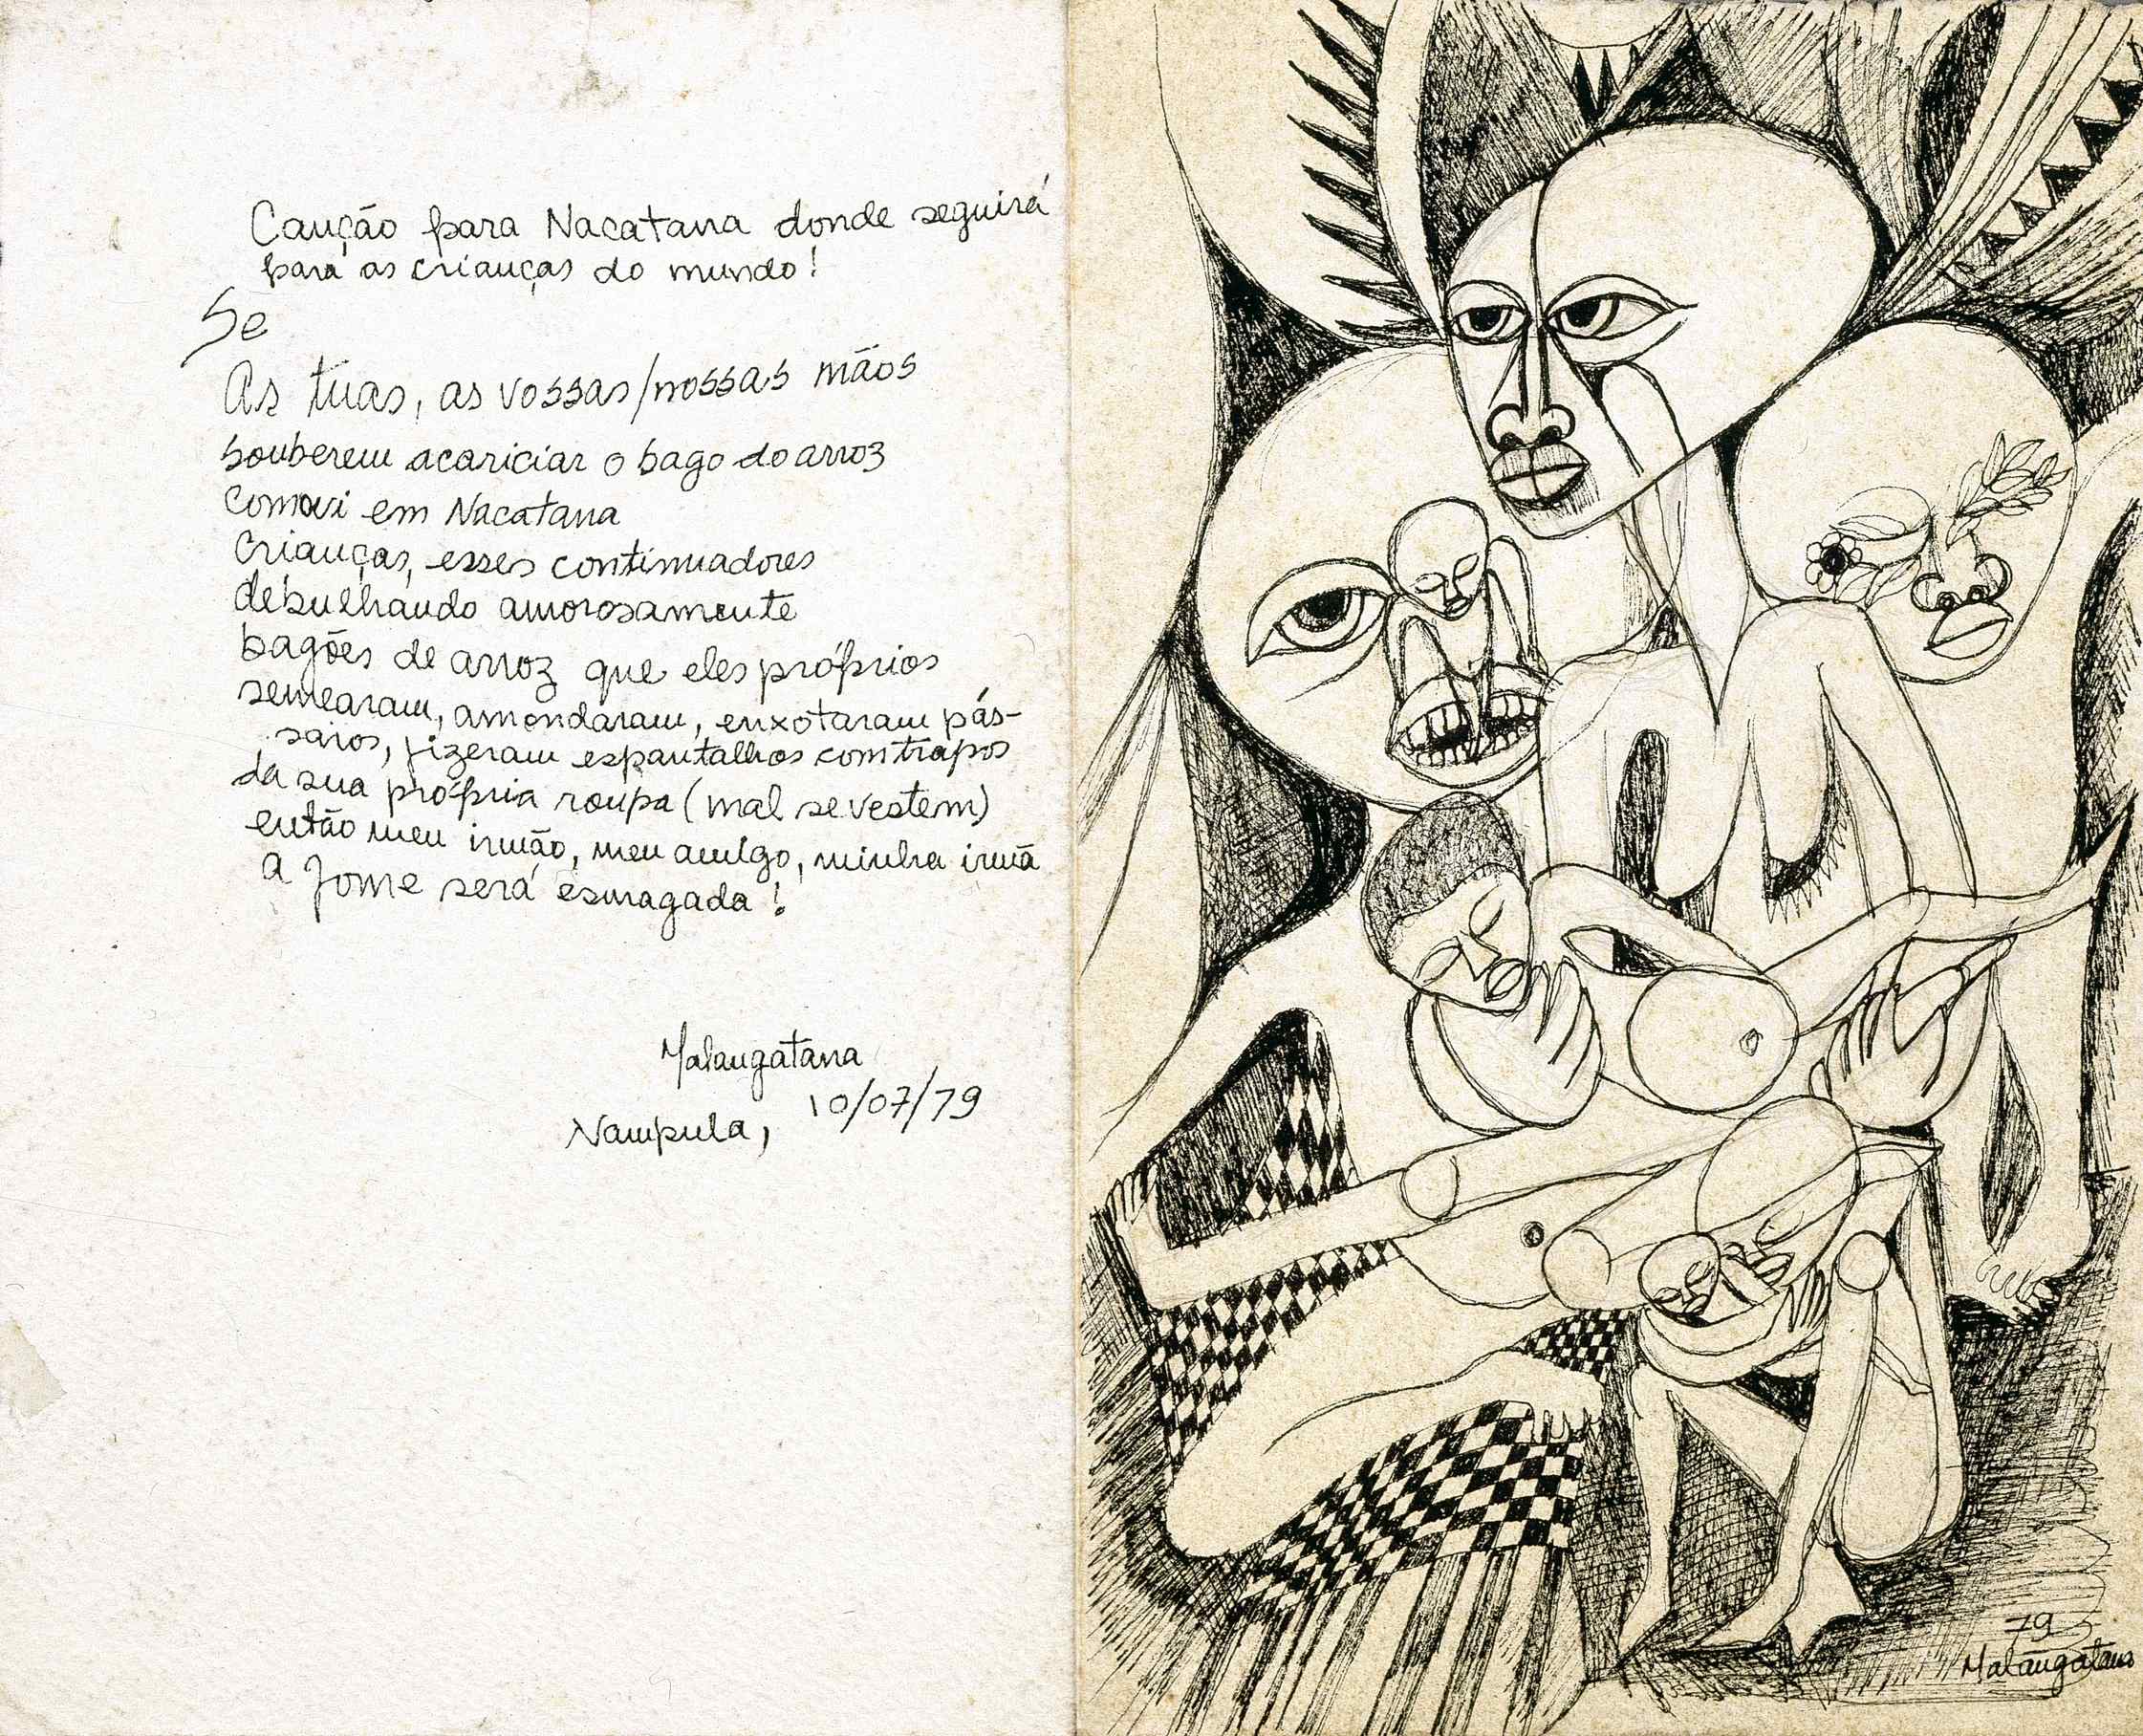 Canção para Nacatana donde seguirá
para as crianças do mundo!
Se
As tuas, as vossas/nossas mãos
souberem acariciar o bago do arroz
como vi em Nacatana
Crianças, esses continuadores
debulhando amorosamente
bagões de arroz que eles próprios
semearam, amondaram, enxotaram pás-
saros, fizeram espantalhos com trapos
da sua própria roupa (mal se vestem)
então meu irmão, meu amigo, minha irmã
a fome será esmagada!
Malangatana
Nampula, 10/07/79
79
Malangatana